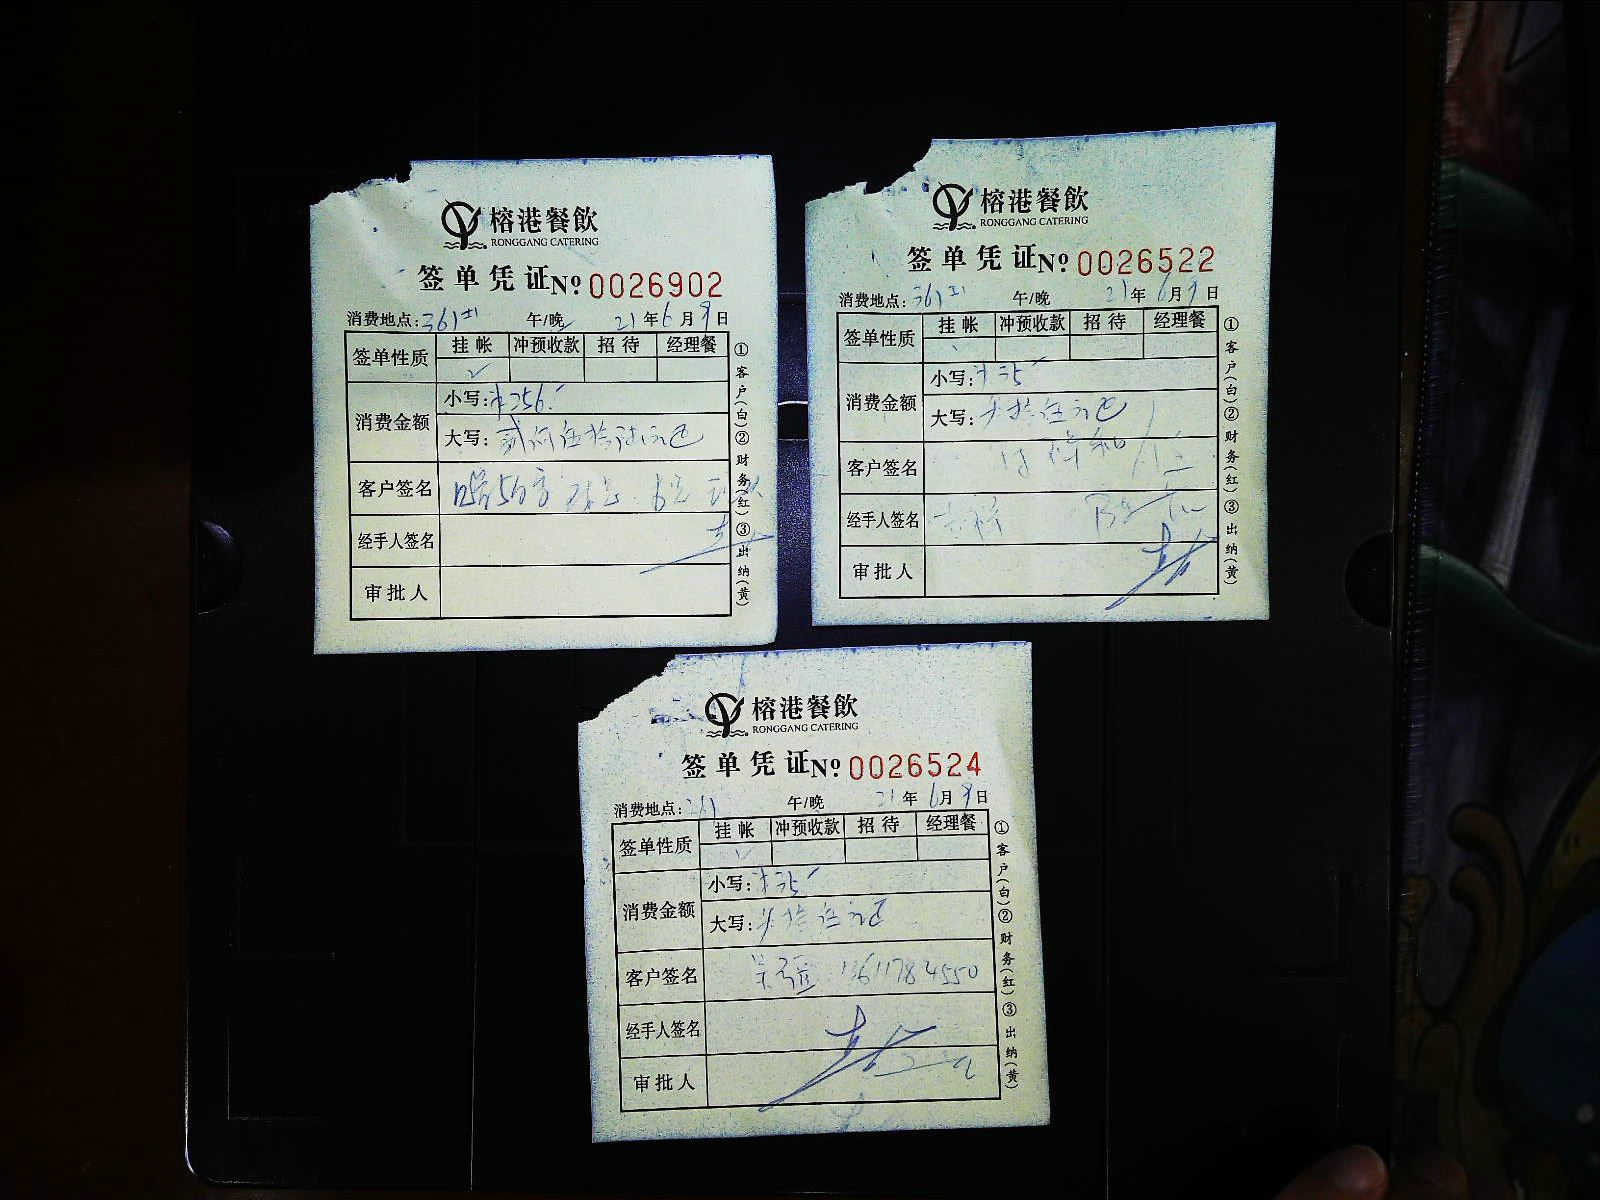 榕港餐飲
RONGGANG CATERING
签单凭证№ 0026902
消费地点: 361 午/晚 21年6月9日
签单性质 挂帐 冲预收款 招待 经理餐
消费金额 小写: ¥256.
大写: 贰佰伍拾陆元
客户签名
经手人签名
审批人
①客户(白)②财务(红)③出纳(黄)
榕港餐飲
RONGGANG CATERING
签单凭证№ 0026522
消费地点: 361 午/晚 21年6月9日
签单性质 挂帐 冲预收款 招待 经理餐
消费金额 小写:
大写: 拾伍元
客户签名
经手人签名
审批人
①客户(白)②财务(红)③出纳(黄)
榕港餐飲
RONGGANG CATERING
签单凭证№ 0026524
消费地点: 361 午/晚 21年6月9日
签单性质 挂帐 冲预收款 招待 经理餐
消费金额 小写:
大写: 拾伍元
客户签名 13611784550
经手人签名
审批人
①客户(白)②财务(红)③出纳(黄)